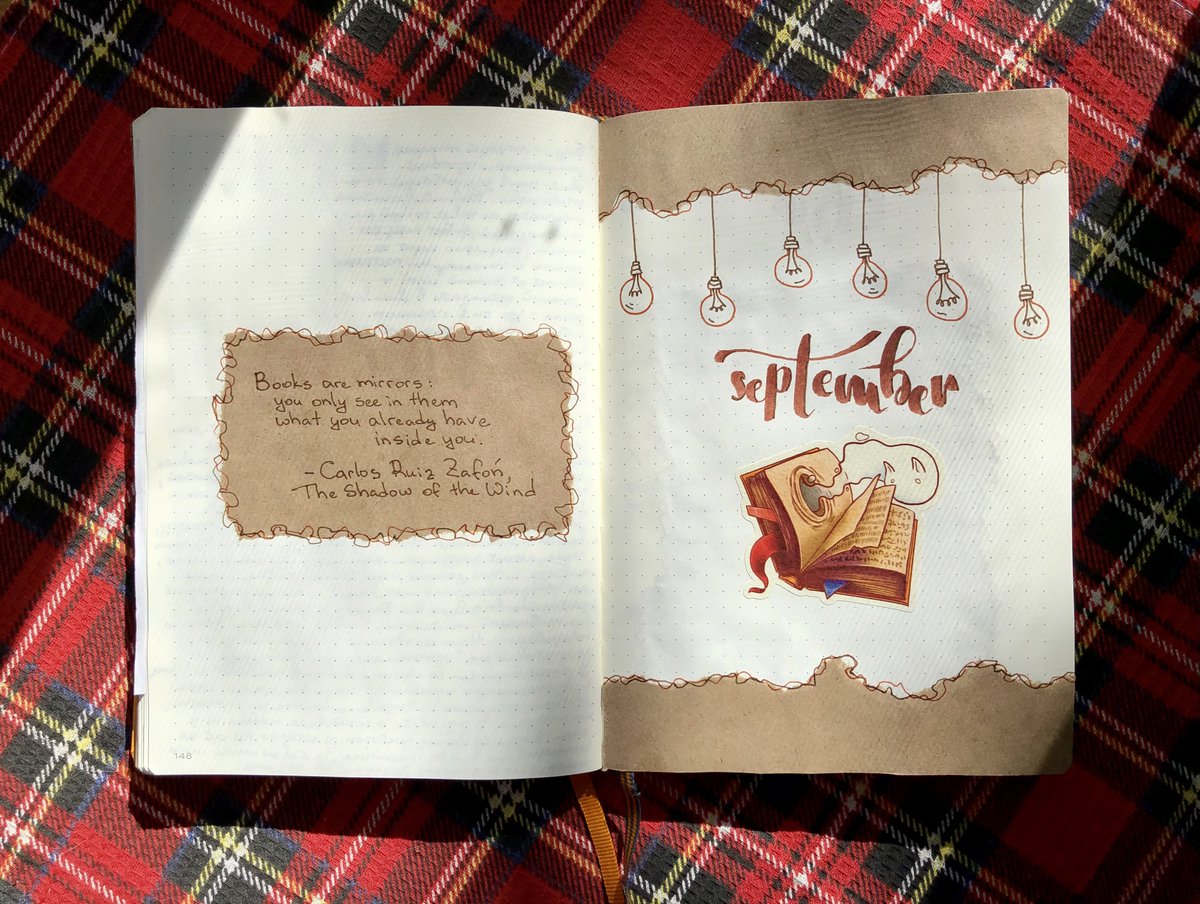 Books are mirrors:
you only see in them
what you already have
inside you.
-Carlos Ruiz Zafoń,
The Shadow of the Wind
148
september